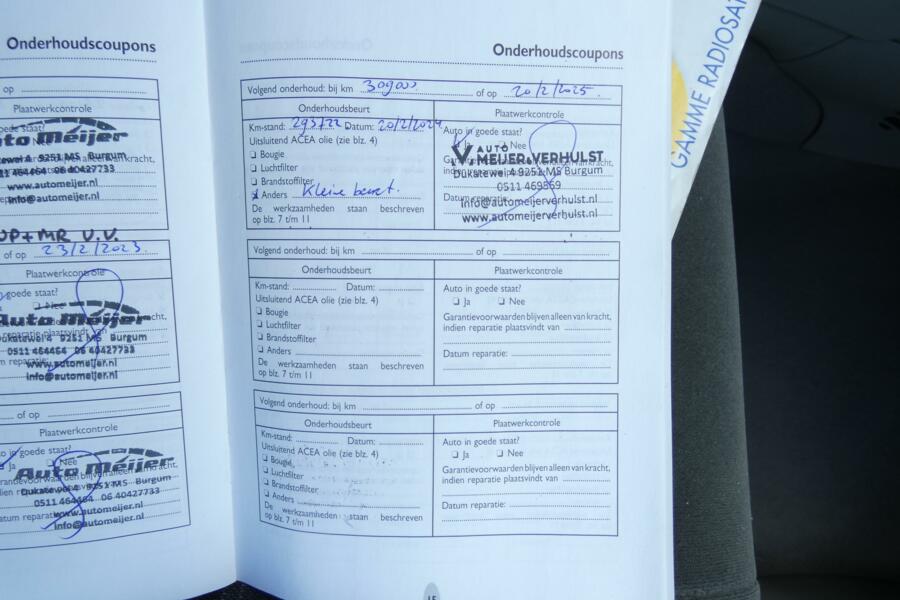 Onderhoudscoupons
op
Plaatwerkcontrole
goede staat?
Auto Meijer
Dukatewei 4 9251 MS Burgum
0511 464464 06 40427733
www.automeijer.nl
info@automeijer.nl
OP + MR V.V.
of op 23/2/2023.
Plaatwerkcontrole
goede staat?
Nee
Auto Meijer
Dukatewei 4 9251 MS Burgum
0511 464464 06 40427733
www.automeijer.nl
info@automeijer.nl
of op
Plaatwerkcontrole
in goede staat?
Ja Nee
Auto Meijer
Dukatewei 4 9251 MS Burgum
0511 464464 06 40427733
www.automeijer.nl
info@automeijer.nl
Onderhoudscoupons
Volgend onderhoud: bij km 309000 of op 20/2/2025.
Onderhoudsbeurt
Km-stand: 293722 Datum: 20/2/2024
Uitsluitend ACEA olie (zie blz. 4)
Bougie
Luchtfilter
Brandstoffilter
Anders Kleine beurt.
De werkzaamheden staan beschreven
op blz. 7 t/m 11
Plaatwerkcontrole
Auto in goede staat?
Ja Nee
AUTO
MEIJER & VERHULST
Dukatewei 4 9251 MS Burgum
0511 469869
info@automeijerverhulst.nl
www.automeijerverhulst.nl
Volgend onderhoud: bij km of op
Onderhoudsbeurt
Km-stand: Datum:
Uitsluitend ACEA olie (zie blz. 4)
Bougie
Luchtfilter
Brandstoffilter
Anders
De werkzaamheden staan beschreven
op blz. 7 t/m 11
Plaatwerkcontrole
Auto in goede staat?
Ja Nee
Garantievoorwaarden blijven alleen van kracht,
indien reparatie plaatsvindt van
Datum reparatie:
Volgend onderhoud: bij km of op
Onderhoudsbeurt
Km-stand: Datum:
Uitsluitend ACEA olie (zie blz. 4)
Bougie
Luchtfilter
Brandstoffilter
Anders
De werkzaamheden staan beschreven
op blz. 7 t/m 11
Plaatwerkcontrole
Auto in goede staat?
Ja Nee
Garantievoorwaarden blijven alleen van kracht,
indien reparatie plaatsvindt van
Datum reparatie:
15
GAMME RADIOSAT